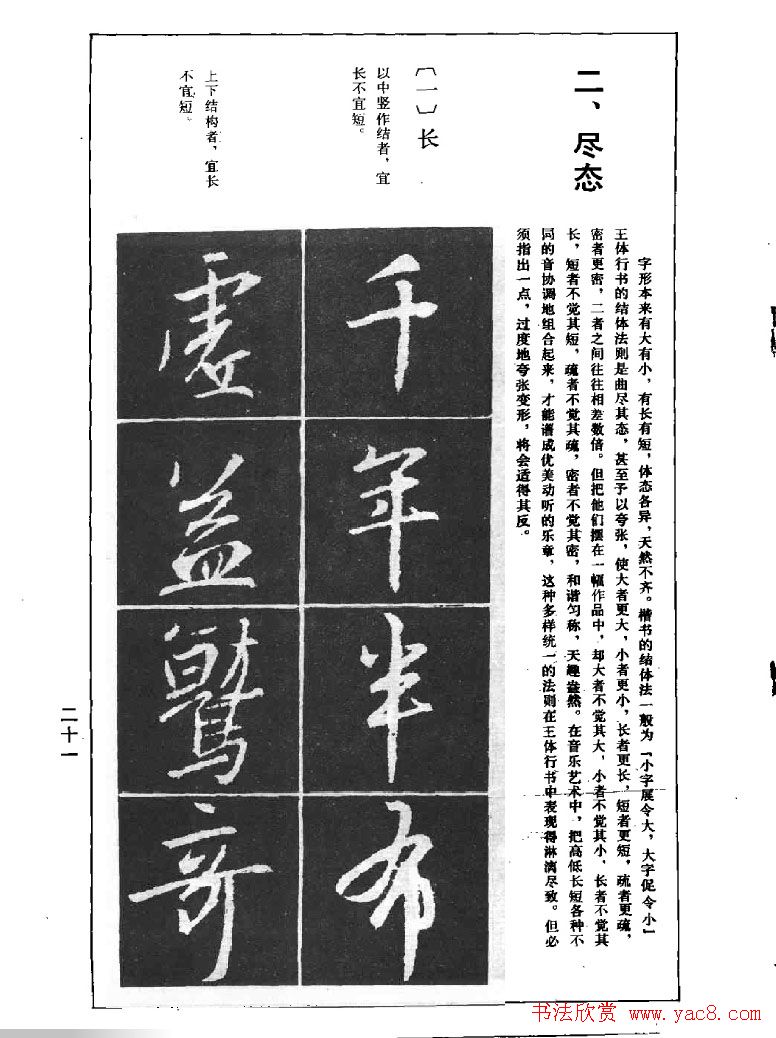 二、尽态
字形本来有大有小，有长有短，体态各异，天然不齐。楷书的结体法一般为「小字展令大，大字促令小」
王体行书的结体法则是曲尽其态，甚至予以夸张，使大者更大，小者更小，长者更长，短者更短，疏者更疏，
密者更密，二者之间往往相差数倍。但把他们摆在一幅作品中，却大者不觉其大，小者不觉其小，长者不觉其
长，短者不觉其短，疏者不觉其疏，密者不觉其密，和谐匀称，天趣盎然。在音乐艺术中，把高低长短各种不
同的音协调地组合起来，才能谱成优美动听的乐章，这种多样统一的法则在王体行书中表现得淋漓尽致。但必
须指出一点，过度地夸张变形，将会适得其反。
〔一〕长
以中竖作结者，宜
长不宜短。
千年半布
上下结构者，宜长
不宜短。
虚益驚奇
二十一
书法欣赏 www.yac8.com